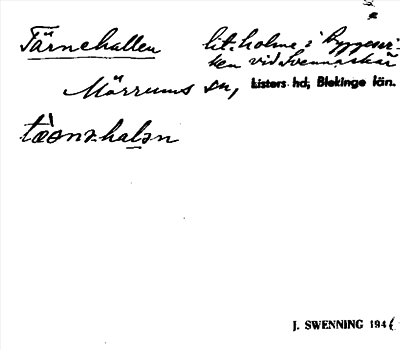 Tärnehallen lit. holme i Byggesvi-
ken vid Svennaskär
Mörrums sn, Listers hd, Blekinge län.
tὰənə-halən
J. SWENNING 1946